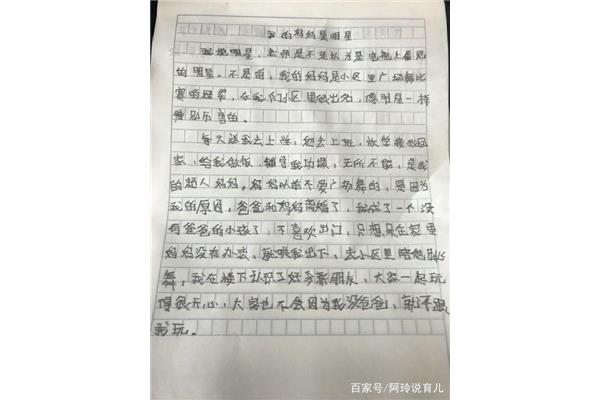 我的妈妈是明星
说起明星，老师是不是认为是电视上看见
的明星。不是的，我的妈妈是小区里广场舞比
赛的冠军，在我们小区里很出名，像明星一样
特别厉害的。
每天送我去上班，她去上班，放学接我回
家，给我做饭，辅导我功课，无所不能，是我
的超人妈妈。妈妈以前不爱广场舞的，是因为
我的原因，爸爸和妈妈离婚了，我成了一个没
有爸爸的小孩了，不喜欢出门，只想呆在家里
妈妈没有办法，就哄我出下，去小区里陪她跳
舞，我在楼下认识了好多新朋友，大家一起玩
得很开心，大家也不会因为我没爸爸，就不跟
我玩。
百家号/阿玲说育儿